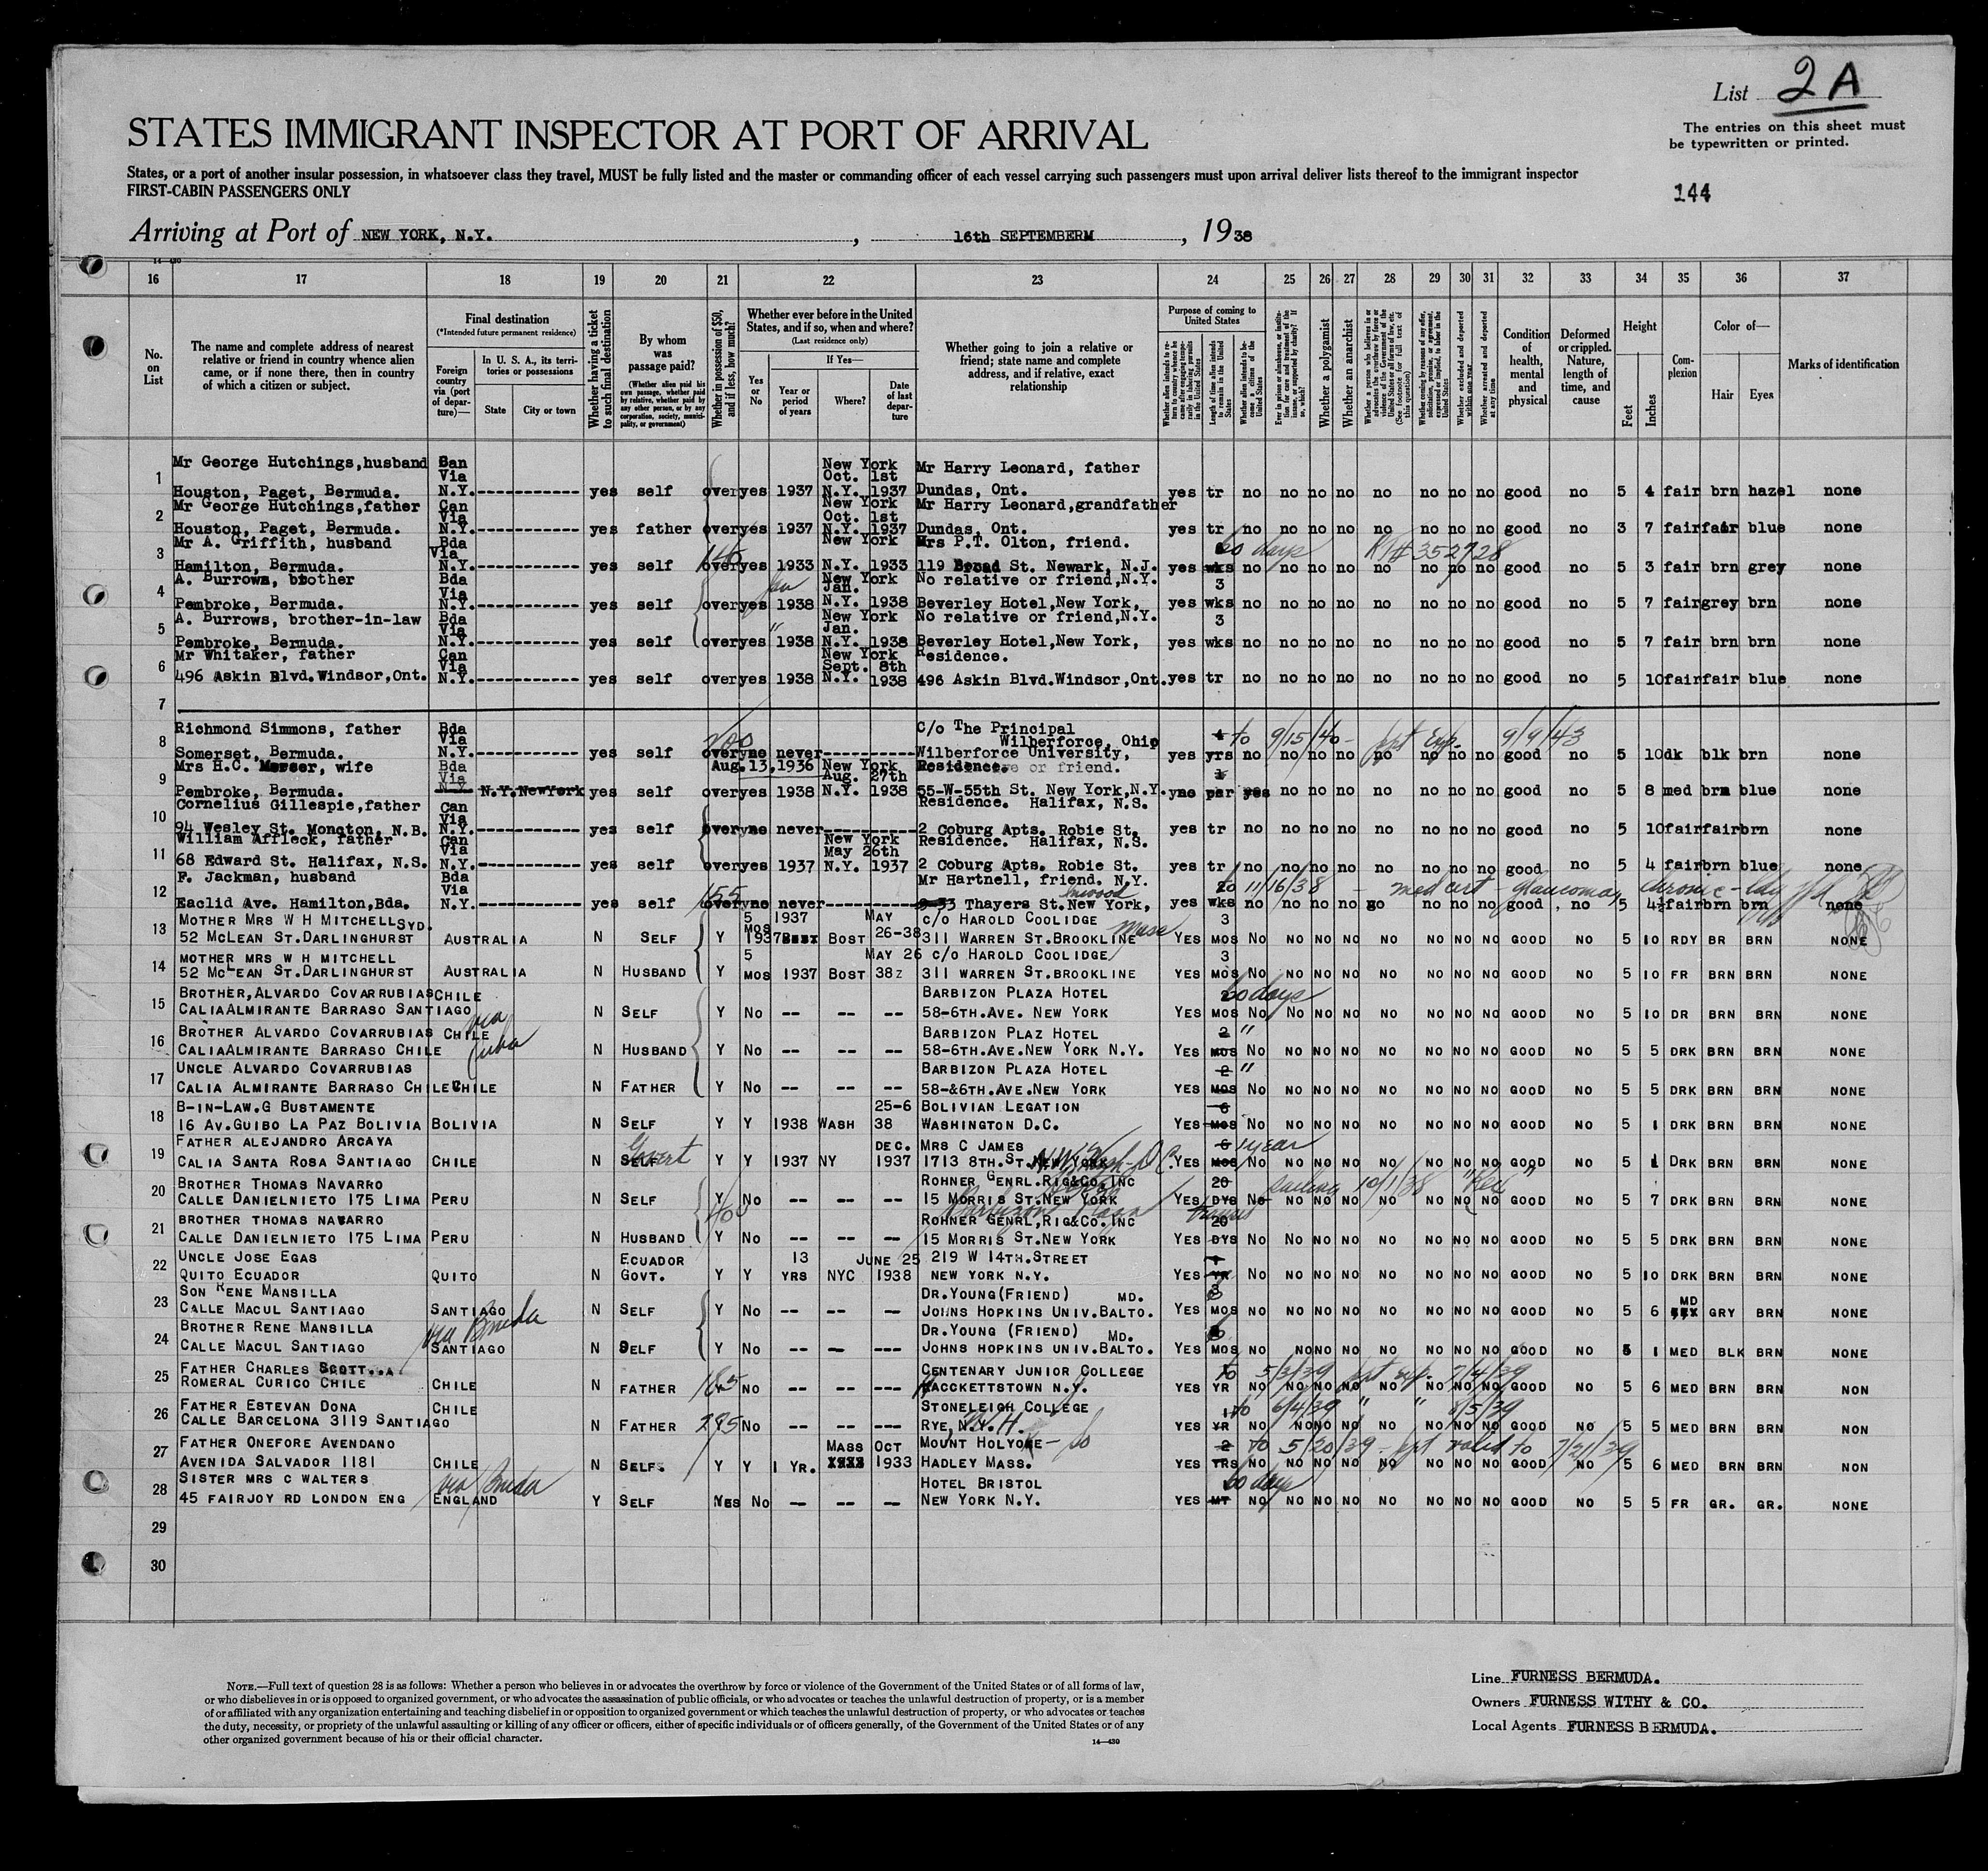 List 2A
The entries on this sheet must
be typewritten or printed.
STATES IMMIGRANT INSPECTOR AT PORT OF ARRIVAL
States, or a port of another insular possession, in whatsoever class they travel, MUST be fully listed and the master or commanding officer of each vessel carrying such passengers must upon arrival deliver lists thereof to the immigrant inspector
FIRST-CABIN PASSENGERS ONLY
144
Arriving at Port of NEW YORK, N.Y. , 16th SEPTEMBERM , 1938
14—430
16 17 18 19 20 21 22 23 24 25 26 27 28 29 30 31 32 33 34 35 36 37
No. on List
The name and complete address of nearest relative or friend in country whence alien came, or if none there, then in country of which a citizen or subject.
Final destination
(*Intended future permanent residence)
Foreign country via (port of departure)—
In U. S. A., its territories or possessions
State
City or town
Whether having a ticket to such final destination
By whom was passage paid?
(Whether alien paid his own passage, whether paid by relative, whether paid by any other person, or by any corporation, society, municipality, or government)
Whether in possession of $50, and if less, how much?
Whether ever before in the United States, and if so, when and where?
(Last residence only)
Yes or No
If Yes—
Year or period of years
Where?
Date of last departure
Whether going to join a relative or friend; state name and complete address, and if relative, exact relationship
Purpose of coming to United States
Length of time alien intends to remain in the United States
Whether alien intends to become a citizen of the United States
Whether a polygamist
Whether an anarchist
Whether excluded and deported within one year
Whether arrested and deported at any time
Condition of health, mental and physical
Deformed or crippled. Nature, length of time, and cause
Height
Feet
Inches
Complexion
Color of—
Hair
Eyes
Marks of identification
1 Mr George Hutchings,husband Can Via New York Oct. 1st Mr Harry Leonard, father
Houston, Paget, Bermuda. N.Y. yes self over yes 1937 N.Y. 1937 Dundas, Ont. yes tr no no no no no no no no good no 5 4 fair brn hazel none
2 Mr George Hutchings,father Can Via New York Oct. 1st Mr Harry Leonard,grandfather
Houston, Paget, Bermuda. N.Y. yes father over yes 1937 N.Y. 1937 Dundas, Ont. yes tr no no no no no no no no good no 3 7 fair fair blue none
3 Mr A. Griffith, husband Bda Via New York Mrs P.T. Olton, friend. 60 days RT# 352728
Hamilton, Bermuda. N.Y. yes self 140 over yes 1933 N.Y. 1933 119 Broad St. Newark, N.J. yes wks no no no no no no no no good no 5 3 fair brn grey none
4 A. Burrows, brother Bda Via New York Jan. No relative or friend,N.Y. 3
Pembroke, Bermuda. N.Y. yes self over yes 1938 N.Y. 1938 Beverley Hotel,New York, yes wks no no no no no no no no good no 5 7 fair grey brn none
5 A. Burrows, brother-in-law Bda Via " New York Jan. No relative or friend,N.Y. 3
Pembroke, Bermuda. N.Y. yes self over yes 1938 N.Y. 1938 Beverley Hotel,New York, yes wks no no no no no no no no good no 5 7 fair brn brn none
6 Mr Whitaker, father Can Via New York Sept. 8th Residence.
496 Askin Blvd.Windsor,Ont. N.Y. yes self over yes 1938 N.Y. 1938 496 Askin Blvd.Windsor,Ont. yes tr no no no no no no no no good no 5 10 fair fair blue none
7
8 Richmond Simmons, father Bda Via 200 C/o The Principal Wilberforce, Ohio 4 to 9/15/40 - ppt Exp. 9/9/43
Somerset, Bermuda. N.Y. yes self over no never Wilberforce University, yes yrs no no no no no no no no good no 5 10 dk blk brn none
9 Mrs H.C. Mercer, wife Bda Via Aug.13,1936 New York Aug. 27th Residence. or friend.
Pembroke, Bermuda. N.Y. N.Y. NewYork yes self over yes 1938 N.Y. 1938 55-W-55th St. New York,N.Y. no per yes no no no no no no no good no 5 8 med brn blue none
10 Cornelius Gillespie,father Can Via Residence. Halifax, N.S.
94 Wesley St. Moncton, N.B. N.Y. yes self over no never 2 Coburg Apts. Robie St. yes tr no no no no no no no no good no 5 10 fair fair brn none
11 William Affleck, father Can Via New York May 26th Residence. Halifax, N.S.
68 Edward St. Halifax, N.S. N.Y. yes self over yes 1937 N.Y. 1937 2 Coburg Apts. Robie St. yes tr no no no no no no no no good no 5 4 fair brn blue none
12 F. Jackman, husband Bda Via 155 Mr Hartnell, friend. N.Y. Inwood to 11/16/38 - med cert - glaucoma, chronic -
Eaclid Ave. Hamilton,Bda. N.Y. yes self over no never 33 Thayers St.New York, yes wks no no no no go no no no good no 5 4½ fair brn brn none
13 MOTHER MRS W H MITCHELL SYD. 5 MOS 1937 MAY C/O HAROLD COOLIDGE Mass 3
52 MCLEAN ST.DARLINGHURST AUSTRALIA N SELF Y 1937 BOST 26-38 311 WARREN ST.BROOKLINE YES MOS NO NO NO NO NO NO NO NO GOOD NO 5 10 RDY BR BRN NONE
14 MOTHER MRS W H MITCHELL 5 MAY 26 C/O HAROLD COOLIDGE 3
52 MCLEAN ST.DARLINGHURST AUSTRALIA N HUSBAND Y MOS 1937 BOST 38Z 311 WARREN ST.BROOKLINE YES MOS NO NO NO NO NO NO NO NO GOOD NO 5 10 FR BRN BRN NONE
15 BROTHER,ALVARDO COVARRUBIAS CHILE BARBIZON PLAZA HOTEL 60 days
CALIAALMIRANTE BARRASO SANTIAGO via N SELF Y NO -- -- -- 58-6TH.AVE. NEW YORK YES MOS NO NO NO NO NO NO NO NO GOOD NO 5 10 DR BRN BRN NONE
16 BROTHER ALVARDO COVARRUBIAS CHILE Cuba BARBIZON PLAZ HOTEL 2 "
CALIAALMIRANTE BARRASO CHILE N HUSBAND Y NO -- -- -- 58-6TH.AVE.NEW YORK N.Y. YES MOS NO NO NO NO NO NO NO NO GOOD NO 5 5 DRK BRN BRN NONE
17 UNCLE ALVARDO COVARRUBIAS BARBIZON PLAZA HOTEL 2 "
CALIA ALMIRANTE BARRASO CHILE CHILE N FATHER Y NO -- -- -- 58-&6TH.AVE.NEW YORK YES MOS NO NO NO NO NO NO NO NO GOOD NO 5 5 DRK BRN BRN NONE
18 B-IN-LAW.G BUSTAMENTE 25-6 BOLIVIAN LEGATION 6
16 AV.GUIBO LA PAZ BOLIVIA BOLIVIA N SELF Y Y 1938 WASH 38 WASHINGTON D.C. YES MOS NO NO NO NO NO NO NO NO GOOD NO 5 1 DRK BRN BRN NONE
19 FATHER ALEJANDRO ARCAYA Govert DEC. MRS C JAMES 6 1 year
CALIA SANTA ROSA SANTIAGO CHILE N SELF Y Y 1937 NY 1937 1713 8TH.ST.NEW YORK N.W. Wash-D.C. YES MOS NO NO NO NO NO NO NO NO GOOD NO 5 1 DRK BRN BRN NONE
20 BROTHER THOMAS NAVARRO ROHNER GENRL.RIG&CO.INC 20 Sailing 10/1/38 "Rex"
CALLE DANIELNIETO 175 LIMA PERU N SELF Y NO -- -- -- 15 MORRIS ST.NEW YORK YES DYS NO NO NO NO NO NO NO NO GOOD NO 5 7 DRK BRN BRN NONE
400 Barbizon Plaza
21 BROTHER THOMAS NAVARRO ROHNER GENRL,RIG&CO.INC 20
CALLE DANIELNIETO 175 LIMA PERU N HUSBAND Y NO -- -- -- 15 MORRIS ST.NEW YORK YES DYS NO NO NO NO NO NO NO NO GOOD NO 5 5 DRK BRN BRN NONE
22 UNCLE JOSE EGAS ECUADOR 13 JUNE 25 219 W 14TH.STREET
QUITO ECUADOR QUITO N GOVT. Y Y YRS NYC 1938 NEW YORK N.Y. YES YR NO NO NO NO NO NO NO NO GOOD NO 5 10 DRK BRN BRN NONE
23 SON RENE MANSILLA DR.YOUNG(FRIEND) MD. MD
CALLE MACUL SANTIAGO SANTIAGO N SELF Y NO -- -- -- JOHNS HOPKINS UNIV.BALTO. YES MOS NO NO NO NO NO NO NO NO GOOD NO 5 6 GRY BRN NONE
via Bmuda
24 BROTHER RENE MANSILLA DR.YOUNG (FRIEND) MD.
CALLE MACUL SANTIAGO SANTIAGO N SELF Y NO -- -- -- JOHNS HOPKINS UNIV.BALTO. YES MOS NO NO NO NO NO NO NO NO GOOD NO 5 1 MED BLK BRN NONE
25 FATHER CHARLES SCOTT CENTENARY JUNIOR COLLEGE to 5/3/39 ppt exp. 7/4/39
ROMERAL CURICO CHILE CHILE N FATHER 185 Y NO -- -- --- HACCKETTSTOWN N.Y. YES YR NO NO NO NO NO NO NO NO GOOD NO 5 6 MED BRN BRN NON
26 FATHER ESTEVAN DONA CHILE STONELEIGH COLLEGE 1 to 6/4/39 " " 8/5/39
CALLE BARCELONA 3119 SANTIAGO N FATHER 295 Y NO -- -- --- RYE, N.H. YES YR NO NO NO NO NO NO NO NO GOOD NO 5 5 MED BRN BRN NONE
27 FATHER ONEFORE AVENDANO MASS OCT MOUNT HOLYOKE - So 2 to 5/20/39 - ppt valid to 7/21/39
AVENIDA SALVADOR 1181 CHILE N SELF. Y Y 1 YR. 1933 HADLEY MASS. YES YRS NO NO NO NO NO NO NO NO GOOD NO 5 6 MED BRN BRN NON
28 SISTER MRS C WALTERS via Bmuda HOTEL BRISTOL 60 days
45 FAIRJOY RD LONDON ENG ENGLAND Y SELF YES NO -- -- -- NEW YORK N.Y. YES MT NO NO NO NO NO NO NO NO GOOD NO 5 5 FR GR. GR. NONE
29
30
NOTE.—Full text of question 28 is as follows: Whether a person who believes in or advocates the overthrow by force or violence of the Government of the United States or of all forms of law,
or who disbelieves in or is opposed to organized government, or who advocates the assassination of public officials, or who advocates or teaches the unlawful destruction of property, or is a member
of or affiliated with any organization entertaining and teaching disbelief in or opposition to organized government or which teaches the unlawful destruction of property, or who advocates or teaches
the duty, necessity, or propriety of the unlawful assaulting or killing of any officer or officers, either of specific individuals or of officers generally, of the Government of the United States or of any
other organized government because of his or their official character.
14—430
Line FURNESS BERMUDA.
Owners FURNESS WITHY & CO.
Local Agents FURNESS BERMUDA.